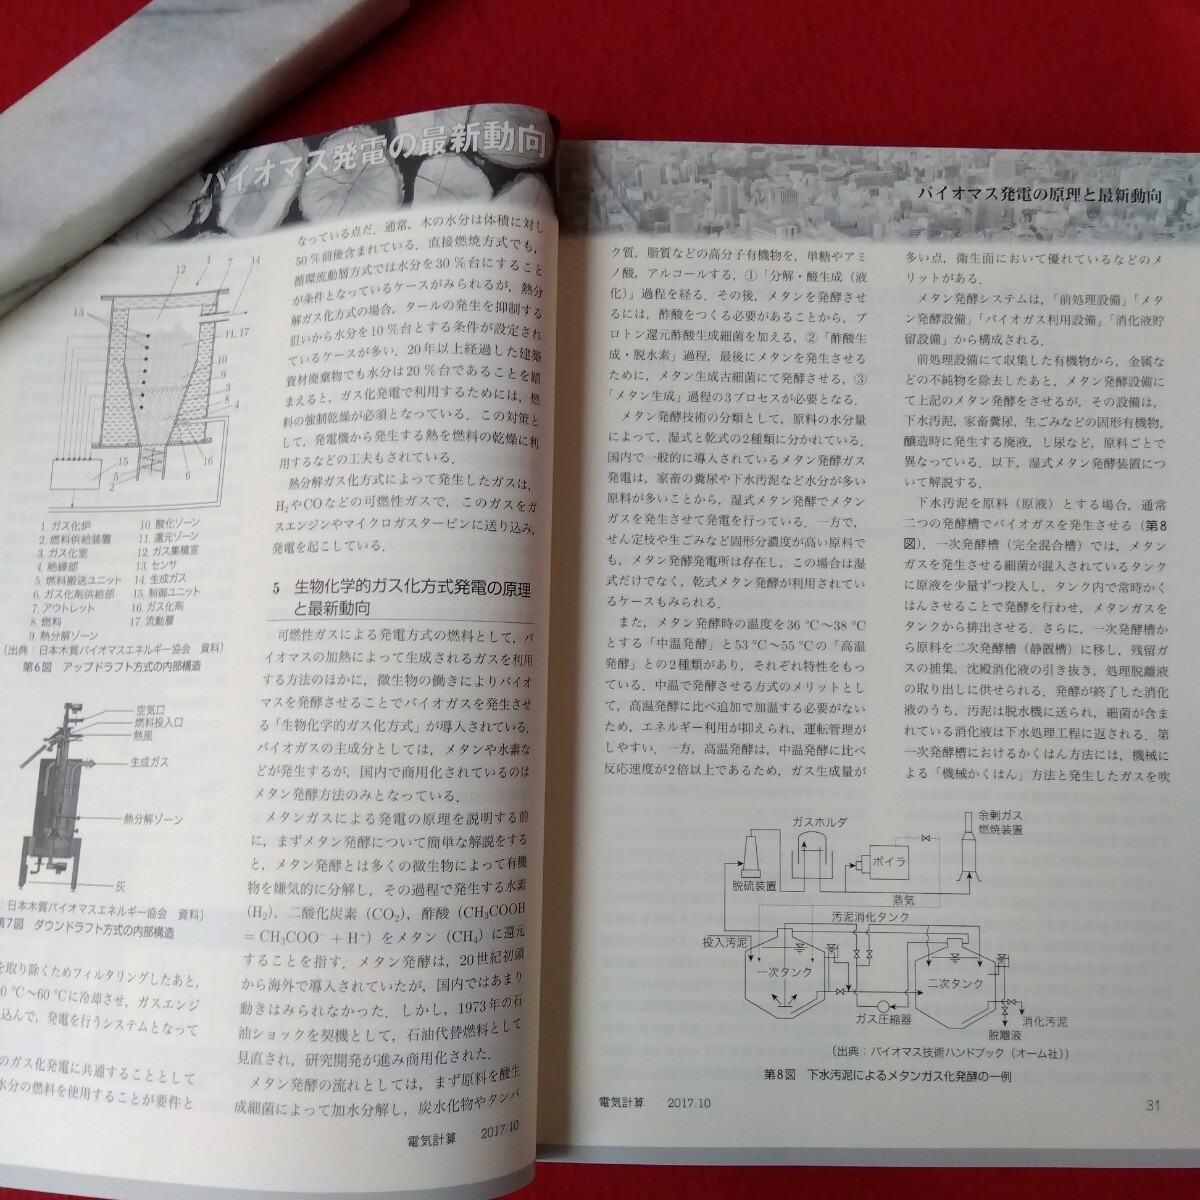 バイオマス発電の最新動向
1
7
14
12
13
11,17
10
9
3
8
4
16
6
15
5
2
1. ガス化炉
2. 燃料供給装置
3. ガス化室
4. 絶縁部
5. 燃料搬送ユニット
6. ガス化剤供給部
7. アウトレット
8. 燃料
9. 熱分解ゾーン
10. 酸化ゾーン
11. 還元ゾーン
12. ガス集積室
13. センサ
14. 生成ガス
15. 制御ユニット
16. ガス化剤
17. 流動層
〔出典：日本木質バイオマスエネルギー協会 資料〕
第6図 アップドラフト方式の内部構造
空気口
燃料投入口
熱風
生成ガス
熱分解ゾーン
灰
：日本木質バイオマスエネルギー協会 資料〕
第7図 ダウンドラフト方式の内部構造
を取り除くためフィルタリングしたあと，
0℃～60℃に冷却させ，ガスエンジ
込んで，発電を行うシステムとなって
のガス化発電に共通することとして
水分の燃料を使用することが要件と
なっている点だ．通常，木の水分は体積に対し
50％前後含まれている．直接燃焼方式でも，
循環流動層方式では水分を30％台にすること
が条件となっているケースがみられるが，熱分
解ガス化方式の場合，タールの発生を抑制する
狙いから水分を10％台とする条件が設定され
ているケースが多い．20年以上経過した建築
資材廃棄物でも水分は20％台であることを踏
まえると，ガス化発電で利用するためには，燃
料の強制乾燥が必須となっている．この対策と
して，発電機から発生する熱を燃料の乾燥に利
用するなどの工夫もされている．
熱分解ガス化方式によって発生したガスは，
H₂やCOなどの可燃性ガスで，このガスをガ
スエンジンやマイクロガスタービンに送り込み，
発電を起こしている．
5 生物化学的ガス化方式発電の原理
と最新動向
可燃性ガスによる発電方式の燃料として，バ
イオマスの加熱によって生成されるガスを利用
する方法のほかに，微生物の働きによりバイオ
マスを発酵させることでバイオガスを発生させ
る「生物化学的ガス化方式」が導入されている．
バイオガスの主成分としては，メタンや水素な
どが発生するが，国内で商用化されているのは
メタン発酵方法のみとなっている．
メタンガスによる発電の原理を説明する前
に，まずメタン発酵について簡単な解説をする
と，メタン発酵とは多くの微生物によって有機
物を嫌気的に分解し，その過程で発生する水素
(H₂)，二酸化炭素（CO₂)，酢酸（CH₃COOH
= CH₃COO⁻ + H⁺）をメタン（CH₄）に還元
することを指す．メタン発酵は，20世紀初頭
から海外で導入されていたが，国内ではあまり
動きはみられなかった．しかし，1973年の石
油ショックを契機として，石油代替燃料として
見直され，研究開発が進み商用化された．
メタン発酵の流れとしては，まず原料を酸生
成細菌によって加水分解し，炭水化物やタンパ
電気計算 2017.10
バイオマス発電の原理と最新動向
ク質，脂質などの高分子有機物を，単糖やアミ
ノ酸，アルコールする，①「分解・酸生成（液
化)」過程を経る．その後，メタンを発酵させ
るには，酢酸をつくる必要があることから，プ
ロトン還元酢酸生成細菌を加える，②「酢酸生
成・脱水素」過程，最後にメタンを発生させる
ために，メタン生成古細菌にて発酵させる，③
「メタン生成」過程の3プロセスが必要となる．
メタン発酵技術の分類として，原料の水分量
によって，湿式と乾式の2種類に分かれている．
国内で一般的に導入されているメタン発酵ガス
発電は，家畜の糞尿や下水汚泥など水分が多い
原料が多いことから，湿式メタン発酵でメタン
ガスを発生させて発電を行っている．一方で，
せん定枝や生ごみなど固形分濃度が高い原料で
も，メタン発酵発電所は存在し，この場合は湿
式だけでなく，乾式メタン発酵が利用されてい
るケースもみられる．
また，メタン発酵時の温度を36℃～38℃
とする「中温発酵」と53℃～55℃の「高温
発酵」との2種類があり，それぞれ特性をもっ
ている．中温で発酵させる方式のメリットとし
て，高温発酵に比べ追加で加温する必要がない
ため，エネルギー利用が抑えられ，運転管理が
しやすい．一方，高温発酵は，中温発酵に比べ
反応速度が2倍以上であるため，ガス生成量が
多い点，衛生面において優れているなどのメ
リットがある．
メタン発酵システムは，「前処理設備」「メタ
ン発酵設備」「バイオガス利用設備」「消化液貯
留設備」から構成される．
前処理設備にて収集した有機物から，金属な
どの不純物を除去したあと，メタン発酵設備に
て上記のメタン発酵をさせるが，その設備は，
下水汚泥，家畜糞尿，生ごみなどの固形有機物，
醸造時に発生する廃液，し尿など，原料ごとで
異なっている．以下，湿式メタン発酵装置につ
いて解説する．
下水汚泥を原料（原液）とする場合，通常
二つの発酵槽でバイオガスを発生させる（第8
図)．一次発酵槽（完全混合槽）では，メタン
ガスを発生させる細菌が混入されているタンク
に原液を少量ずつ投入し，タンク内で常時かく
はんさせることで発酵を行わせ，メタンガスを
タンクから排出させる．さらに，一次発酵槽か
ら原料を二次発酵槽（静置槽）に移し，残留ガ
スの捕集，沈殿消化液の引き抜き，処理脱離液
の取り出しに供せられる．発酵が終了した消化
液のうち，汚泥は脱水機に送られ，細菌が含ま
れている消化液は下水処理工程に返される．第
一次発酵槽におけるかくはん方法には，機械に
よる「機械かくはん」方法と発生したガスを吹
ガスホルダ
余剰ガス
燃焼装置
ボイラ
脱硫装置
蒸気
汚泥消化タンク
投入汚泥
一次タンク
二次タンク
ガス圧縮器
消化汚泥
脱離液
〔出典：バイオマス技術ハンドブック（オーム社)〕
第8図 下水汚泥によるメタンガス化発酵の一例
電気計算 2017.10
31